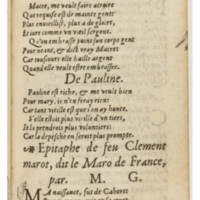 Macee, me veult faire acroire
Que requise est de mainte gent:
Plus envieillist, plus a de gloire,
Et jure comme un vieil sergent.
Qu'on embrasse point son corps gent
Pour neant, & dict vray Macee:
Car tousjours elle baille argent
Quand elle veult estre embrassee.
De Pauline.
Pauline est riche, & me veult bien
Pour mary: je n'en feray rien:
Car tant vieille est que j'en ay honte.
S'elle estoit plus vieille d'un tiers,
Je la prendrois plus voluntiers:
Car la depesche en seroit plus prompte.
Epitaphe de feu Clement
marot, dit le Maro de France,
par. M. G.
MA naissance, fut de Cahors